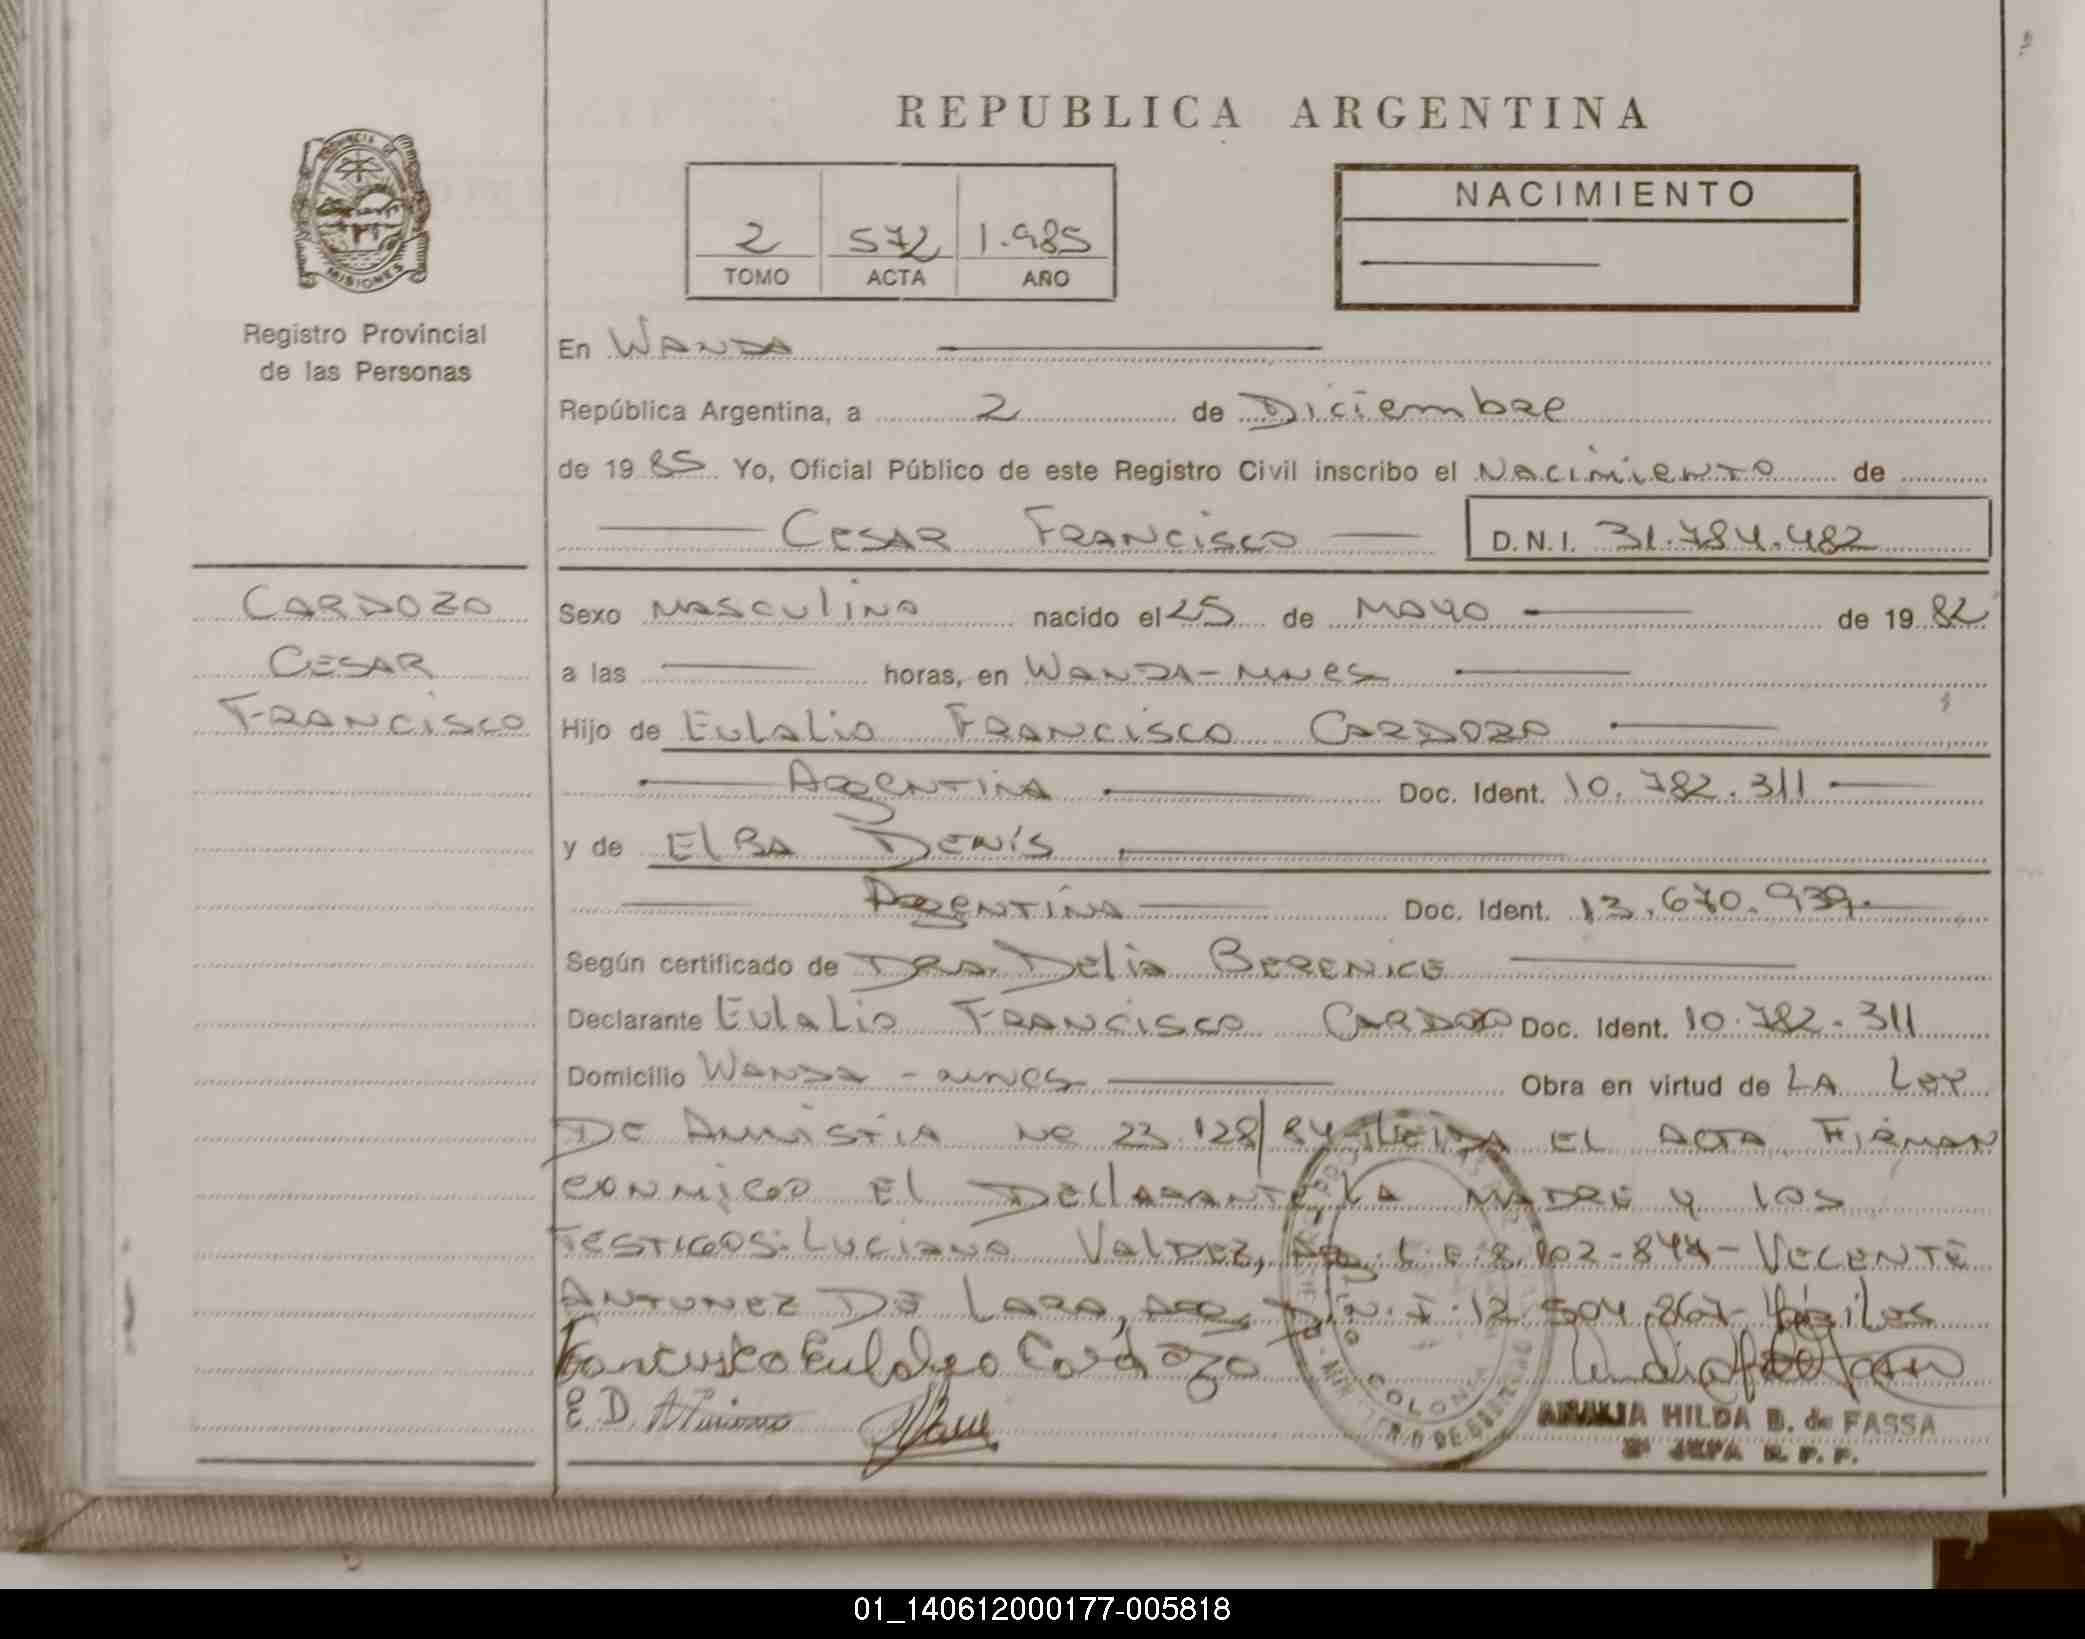 REPUBLICA ARGENTINA
PROVINCIA DE
MISIONES
Registro Provincial
de las Personas
2 572 1.985
TOMO ACTA AÑO
NACIMIENTO
En WANDA
República Argentina, a 2 de Diciembre
de 1985 Yo, Oficial Público de este Registro Civil inscribo el Nacimiento de
CESAR FRANCISCO D.N.I. 31.784.482
CARDOZO
CESAR
FRANCISCO
Sexo MASCULINO nacido el 25 de MAYO de 1982
a las horas, en WANDA-MNES
Hijo de Eulalio FRANCISCO CARDOZO
ARGENTINA Doc. Ident. 10.782.311
y de ELBA DENIS
ARGENTINA Doc. Ident. 13.670.939.
Según certificado de DRA. Delia BERENICE
Declarante Eulalio FRANCISCO CARDOZO Doc. Ident. 10.782.311
Domicilio WANDA - MNES Obra en virtud de LA LEY
DE AMNISTIA No 23.128/84-LEIDA EL ACTA FIRMAN
CONMIGO EL DECLARANTE, LA MADRE Y LOS
TESTIGOS: LUCIANO VALDEZ, ARG. L.E. 8.102.844 - VICENTE
ANTUNEZ DE LARA, ARG. D.N.I. 12.504.867- Hábiles
Francisco Eulalio Cardozo
E. D.
COLONIA
AMALIA HILDA B. de FASSA
JEFA R. P. P.
01_140612000177-005818